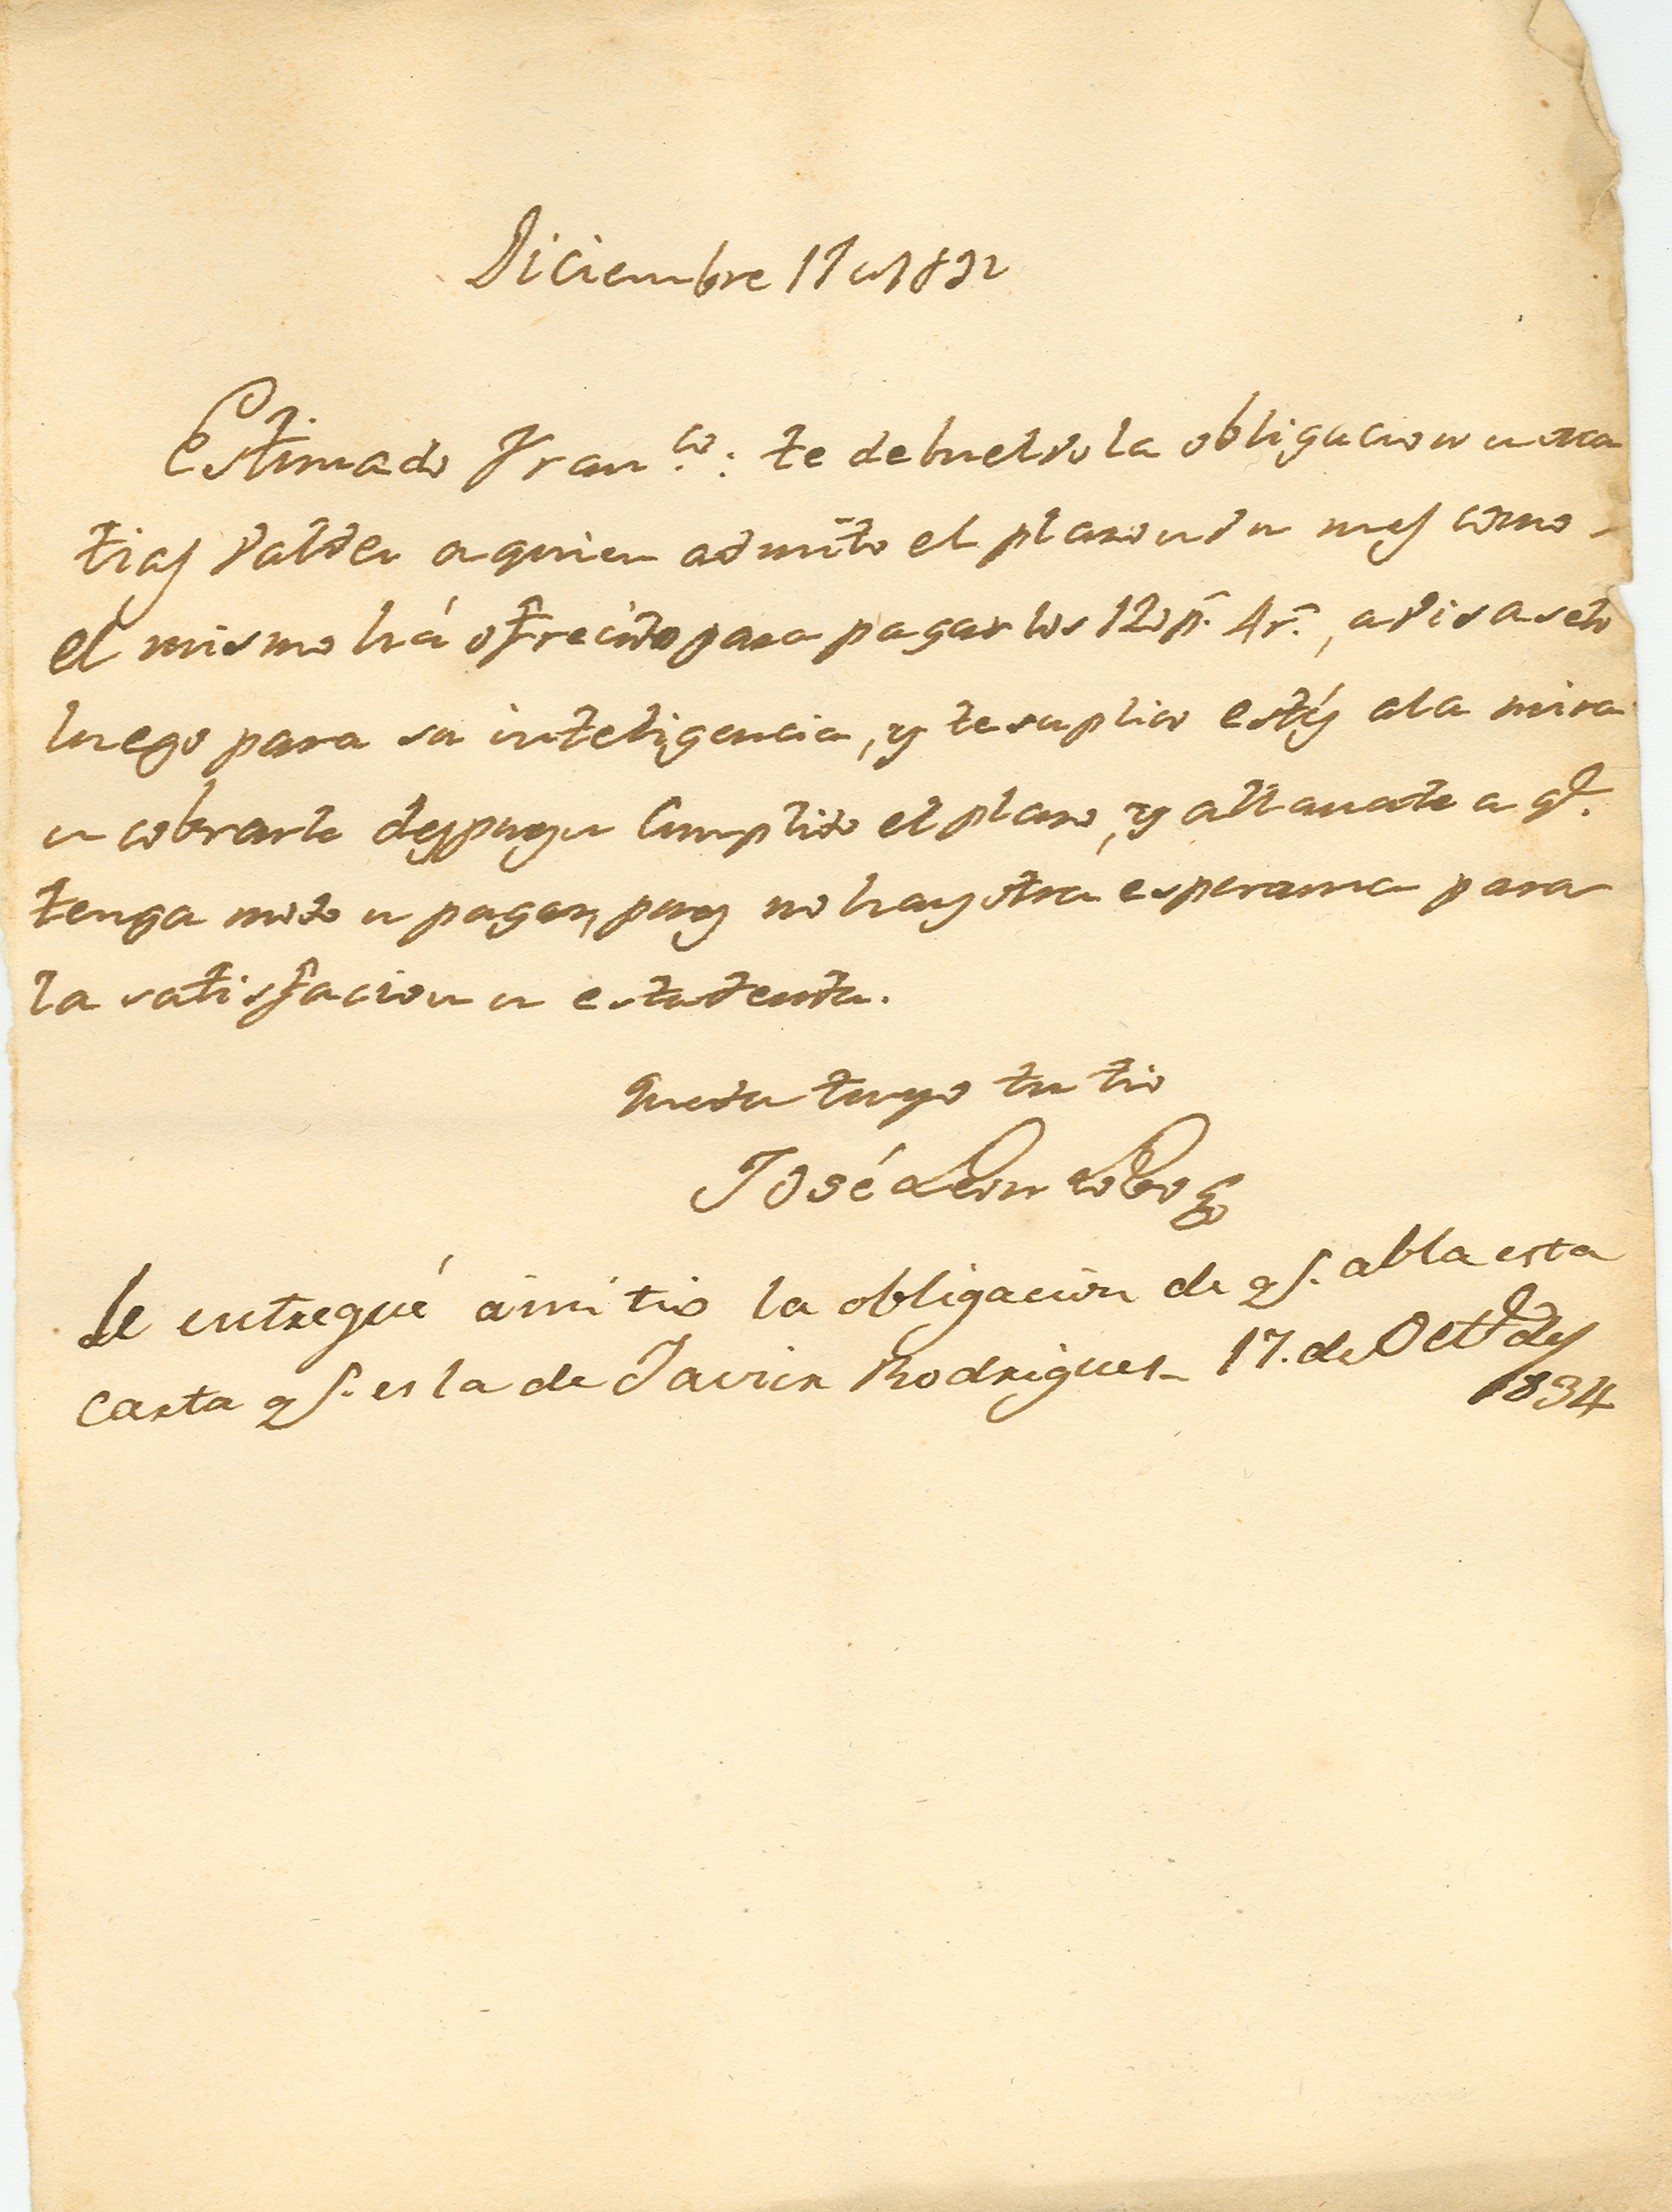 Diciembre 17 de 1832
Estimado Fran.co: te debuelvo la obligacion de Ma
tias Valdes a quien admito el plaso de un mes como
el mismo há ofrecido para pagar los 120 p.s 4 r.s, avisaselo
luego para su inteligencia, y te suplico estés a la mira
de cobrarle despues de cumplido el plaso, y allanarle a q.e
tenga modo de pagar, pues no hay otra esperansa para
la satisfacion de esta deuda.
Queda tuyo tu tio
José Leon Lobo
Le entregué á mi tio la obligación de q.e abla esta
carta q.e es la de Javier Rodrigues 17. de Oct.e de
1834